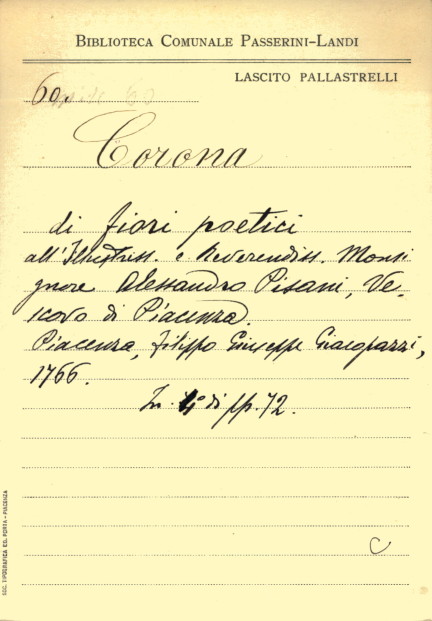 BIBLIOTECA COMUNALE PASSERINI-LANDI
LASCITO PALLASTRELLI
60.
Corona
di fiori poetici
all'Illustriss. e Reverendiss. Monsi
gnore Alessandro Pisani, Ve-
scovo di Piacenza.
Piacenza, Filippo Giuseppe Giacopazzi,
1766.
In 4° di pp. 72.
C
SOC. TIPOGRAFICA ED. PORTA - PIACENZA